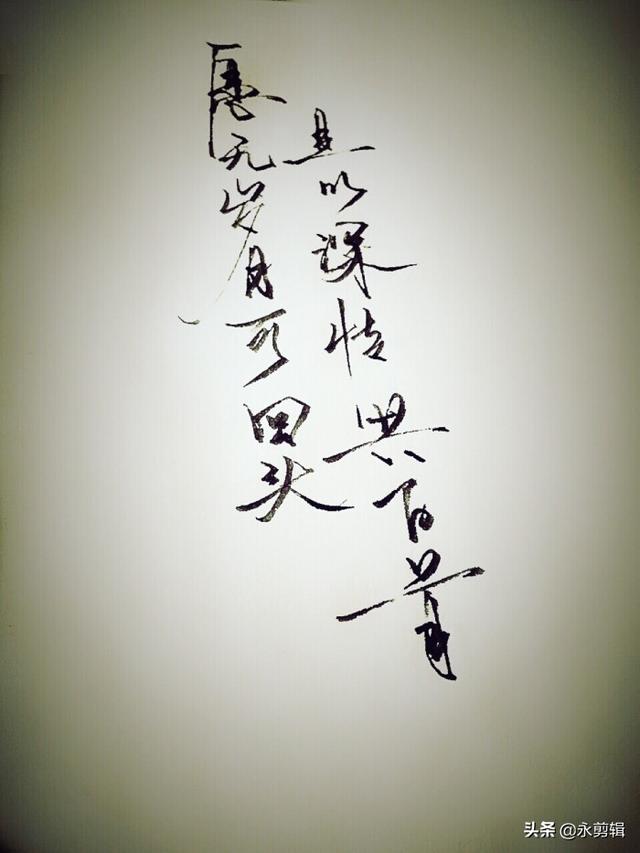 愿无岁月可回头
且以深情共白首
头条 @永剪辑